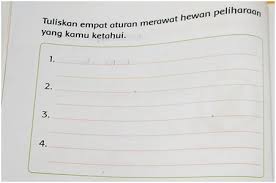 Tuliskan empat aturan merawat hewan peliharaan
yang kamu ketahui.
1.
2.
3.
4.